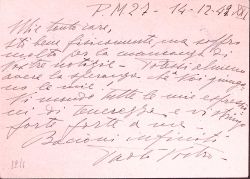 P.M 27 - 14-12-42 XXI
Mie tanto care,
Sto bene fisicamente, ma soffro
molto per la mancanza di
Vostre notizie. Potessi almeno
avere la speranza che Vi giungano
le mie!
Vi mando tutte le mie espressio
ni di tenerezza e vi stringo
forte forte a me.
Bacioni infiniti